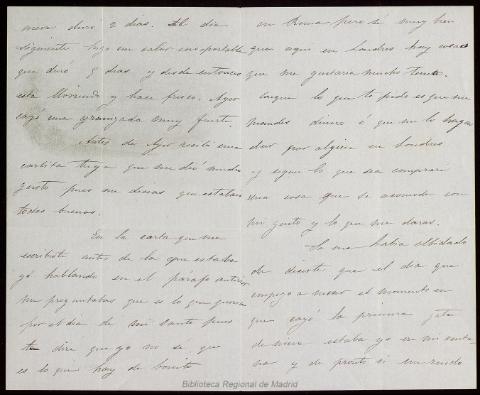 nieva duro 2 dias. Al dia
siguiente hizo un calor insoportable
que duró 4 dias y desde entonces
esta lloviendo y hace fresco. Ayer
cayó una granizada muy fuerte.
Antes de Ayer recibí una
cartita tuya que me dió mucho
gusto pues me decias que estaban
todos buenos.
En la carta que me
escribiste antes de la que estaba
yó hablando en el párafo anterior
me preguntabas que es lo que queria
por el dia de mi santo pues
te dire que yo no se que
es lo que hay de bonito
en Roma pero sé muy bien
que aqui en Londres hay cosas
que me gustaria mucho tener.
Luego lo que te pido es que me
mandes dinero ó que me lo hagas
dar por alguien en Londres
y sigue lo que sea comprar
una cosa que se acomode con
mi gusto y lo que me daras.
Se me habia olbidado
de decirte que el dia que
empezo a nevar el momento en
que cayó la primera gota
de nieve estaba yo en mi
y de pronto oi un ruido
Biblioteca Regional de Madrid